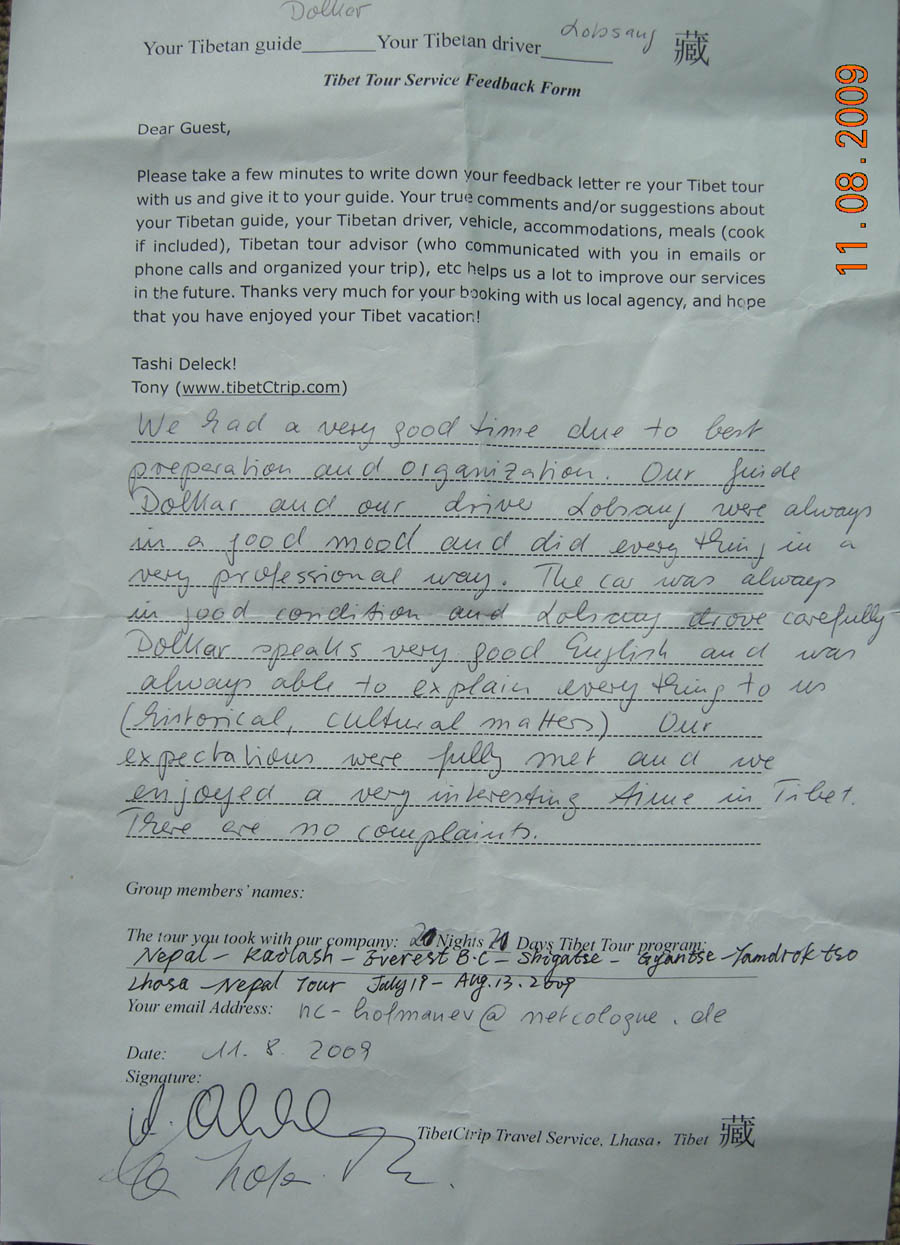 Dolkar Lobsang
Your Tibetan guide________Your Tibetan driver________ 藏
Tibet Tour Service Feedback Form
11.08.2009
Dear Guest,
Please take a few minutes to write down your feedback letter re your Tibet tour
with us and give it to your guide. Your true comments and/or suggestions about
your Tibetan guide, your Tibetan driver, vehicle, accommodations, meals (cook
if included), Tibetan tour advisor (who communicated with you in emails or
phone calls and organized your trip), etc helps us a lot to improve our services
in the future. Thanks very much for your booking with us local agency, and hope
that you have enjoyed your Tibet vacation!
Tashi Deleck!
Tony (www.tibetCtrip.com)
We had a very good time due to best
preperation and organization. Our guide
Dolkar and our driver Lobsang were always
in a good mood and did every thing in a
very professional way. The car was always
in good condition and Lobsang drove carefully
Dolkar speaks very good English and was
always able to explain every thing to us
(historical, cultural matters) Our
expectations were fully met and we
enjoyed a very interesting time in Tibet.
There are no complaints.
Group members' names:
The tour you took with our company: 20 Nights 21 Days Tibet Tour program:
Nepal - Kailash - Everest B.C - Shigatse - Gyantse - Yamdrok tso
Lhasa - Nepal Tour July 19 - Aug. 13. 2009
Your email Address: nc-hofmanev@netcologne.de
Date: 11. 8. 2009
Signature:
TibetCtrip Travel Service, Lhasa, Tibet 藏